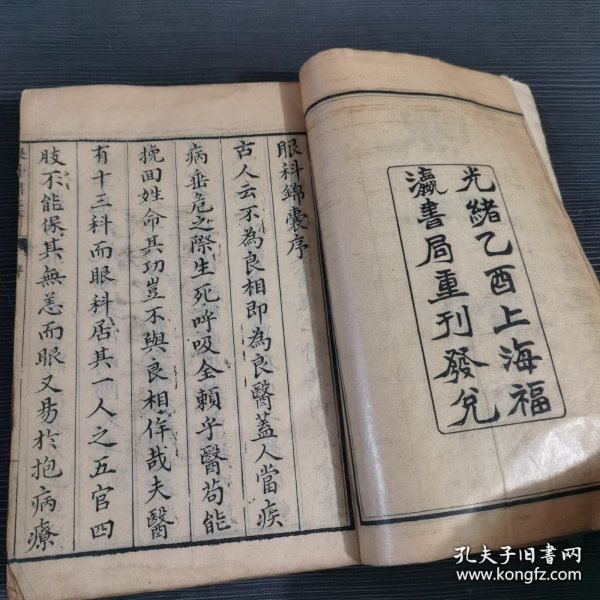 光緒乙酉上海福
瀛書局重刊發兌
眼科錦囊序
古人云不為良相即為良醫蓋人當疾
病垂危之際生死呼吸全賴乎醫苟能
挽回姓命其功豈不與良相侔哉夫醫
有十三科而眼科居其一人之五官四
肢不能保其無恙而眼又易於抱病療
序
孔夫子旧书网
www.kongfz.com